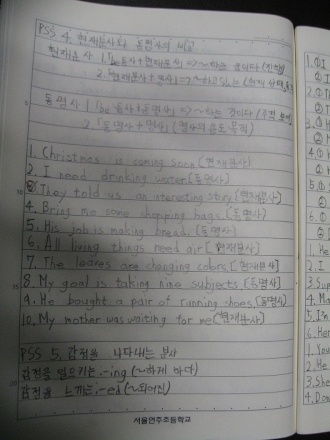 PSS 4. 현재분사와 동명사의 비교
현재분사 1. 「be동사+현재분사」 => ~하는 중이다 (진행)
2. 「현재분사+명사」 => ~하고 있는
동명사 1. 「be동사+동명사」 => ~하는 것이다 (주격 보어)
2. 「동명사+명사」 (명사의 용도, 목적)
1. Christmas is coming soon. (현재분사)
2. I need drinking water. (동명사)
3. They told us an interesting story. (현재분사)
4. Bring me some shopping bags. (동명사)
5. His job is making bread. (동명사)
6. All living things need air. [현재분사]
7. The leaves are changing colors. [현재분사]
8. My goal is taking nine subjects. (동명사)
9. He bought a pair of running shoes. (동명사)
10. My mother was waiting for me. (현재분사)
PSS 5. 감정을 나타내는 분사
감정을 일으키는: -ing (~하게 하다)
감정을 느끼는: -ed (~되어진)
서울연주초등학교